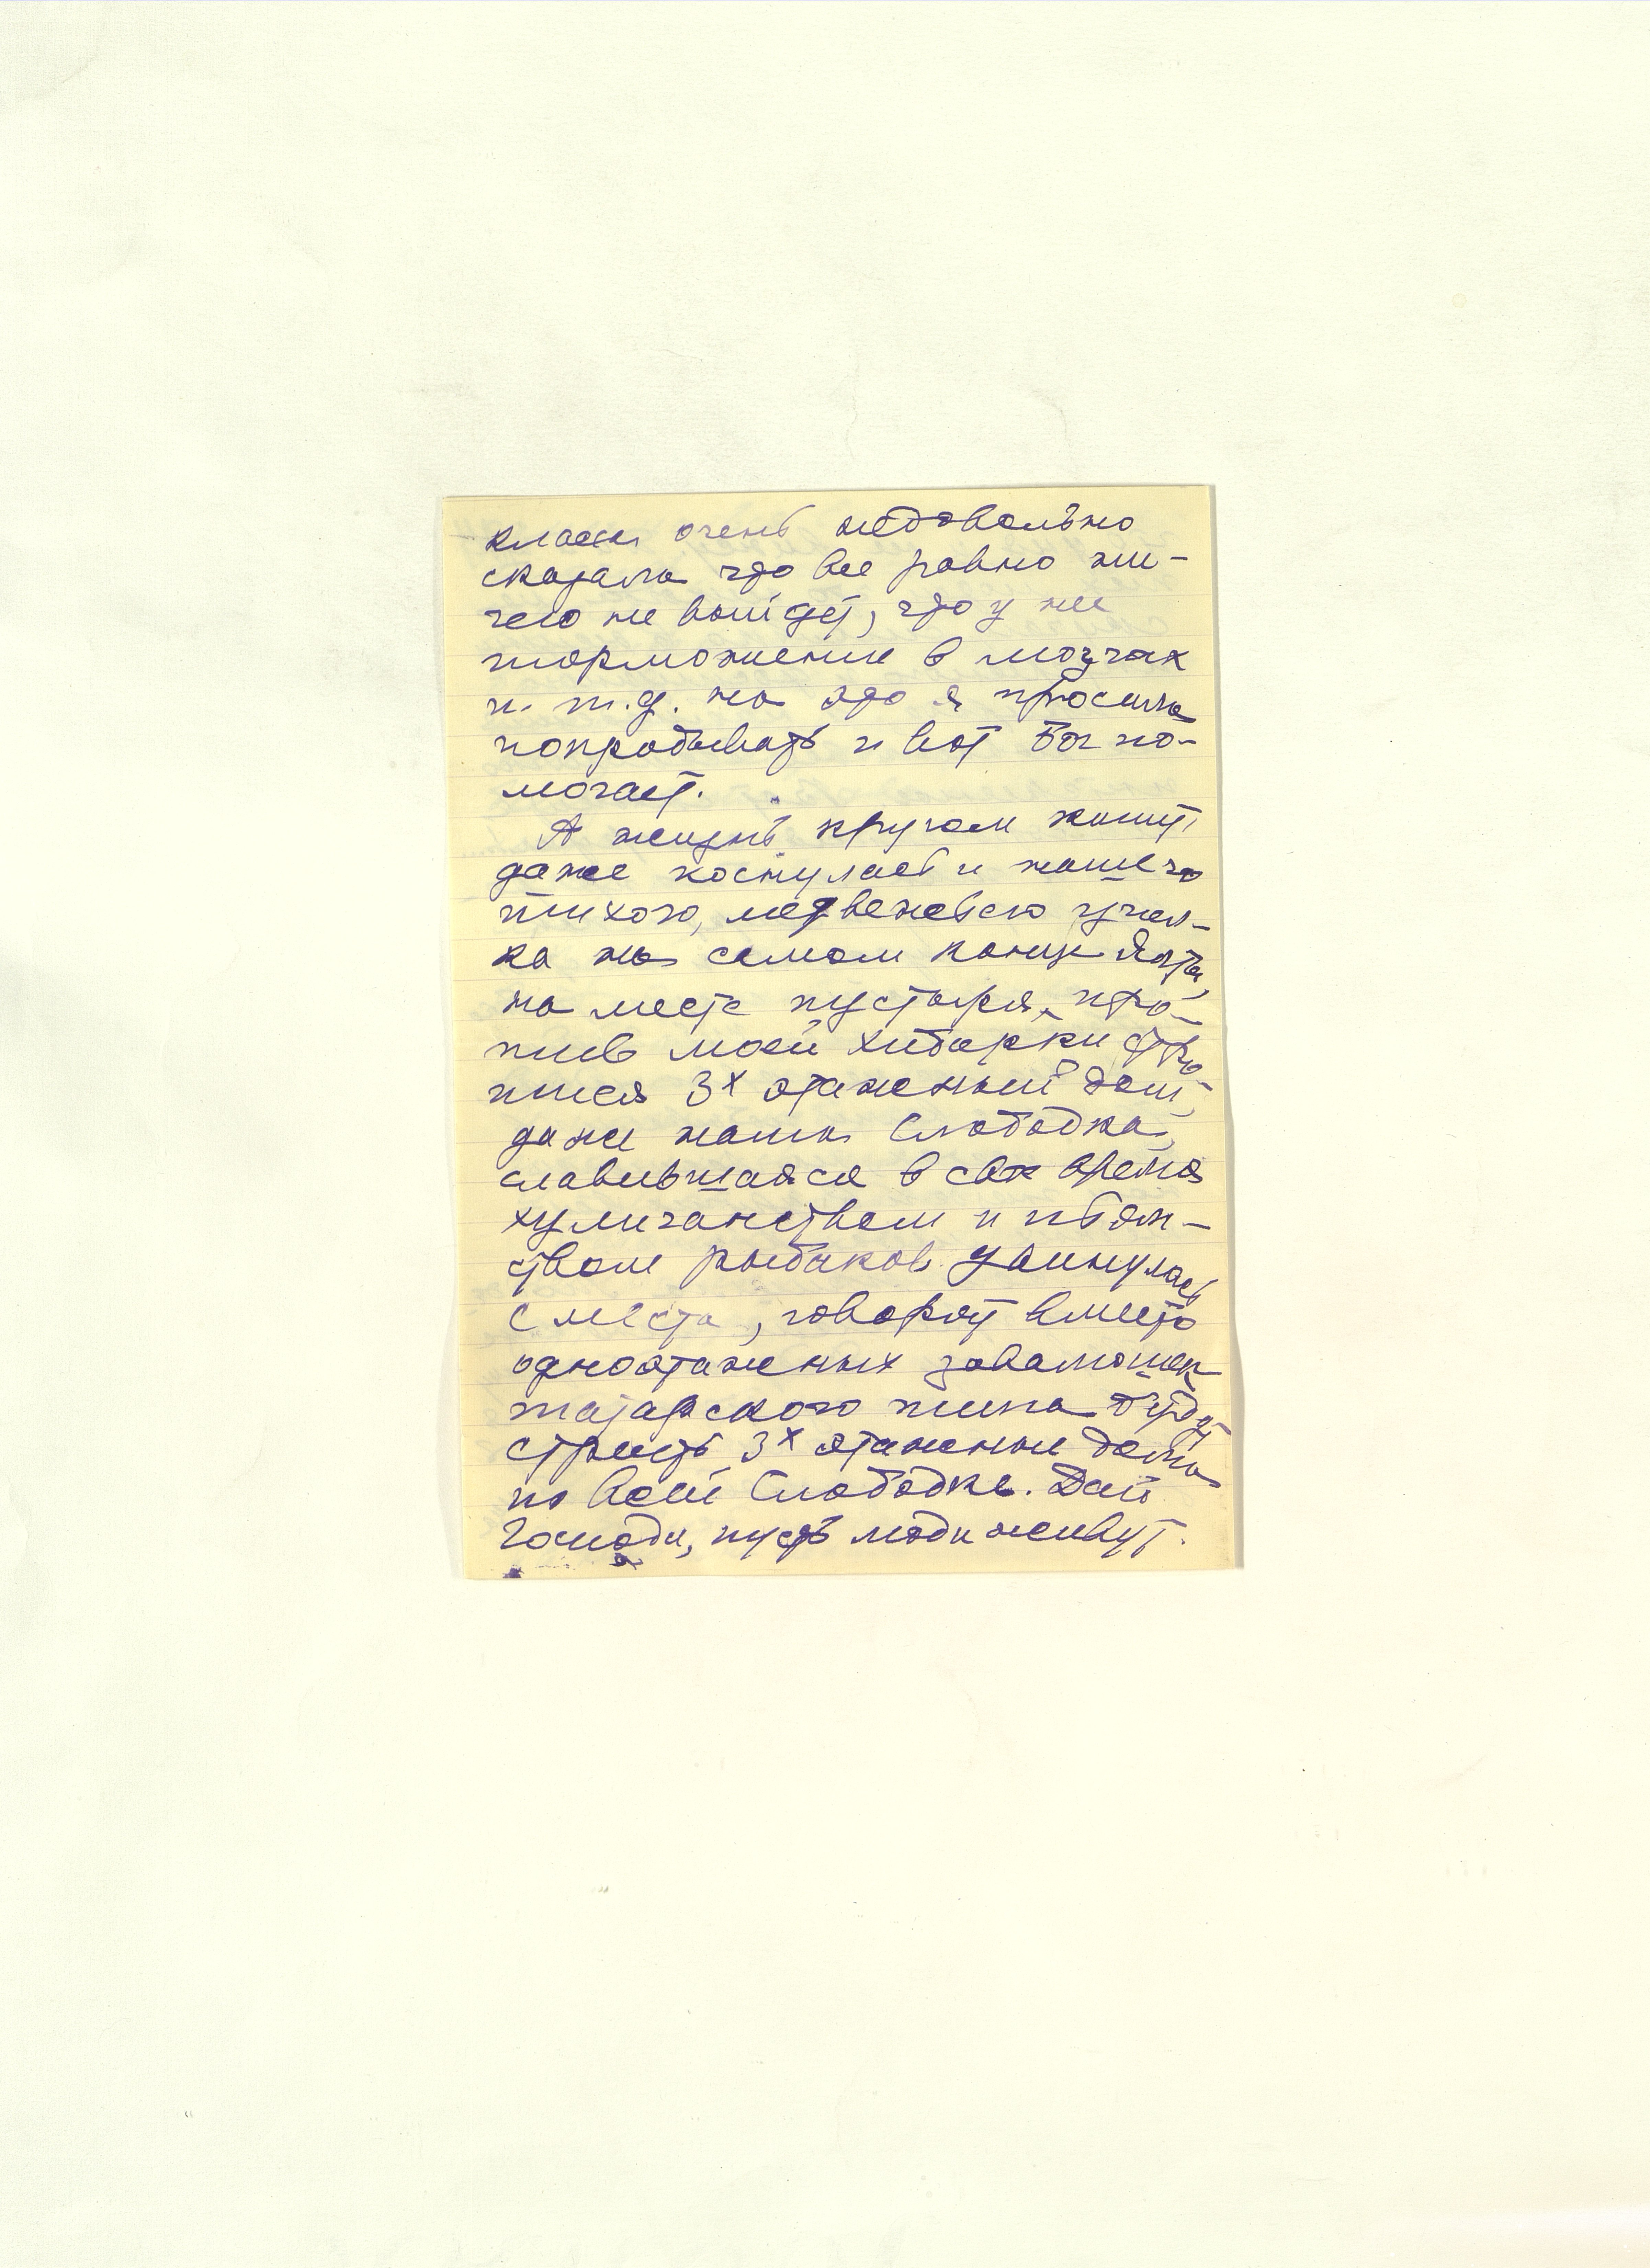 класса очень недовольно
сказала что все равно ни-
чего не выйдет, что у нее
торможение в мозгах
и т.д. но это я просила
попробывать и вот Бог по-
могает.
А жизнь кругом кипит,
даже коснулась и нашего
тихого, медвежьего угол-
ка на самом конце Ялты,
на месте пустыря, про-
тив моей хибарки стро-
ится 3х этажный дом,
даже наша Слободка,
славившаяся в свое время
хулиганством и пьян-
ством рыбаков двинулась
с места, говорят вместо
одноэтажных завалюшек
татарского типа будут
строить 3х этажные дома
по всей Слободке. Дай
Господи, пусть люди живут.